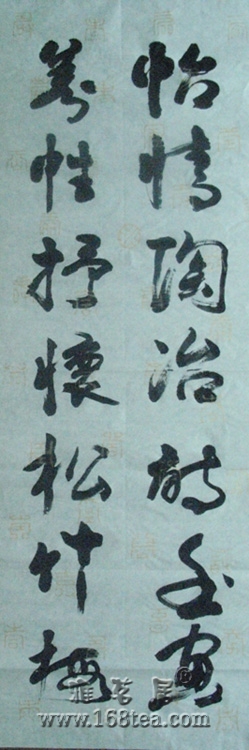 怡情陶冶诗书画
养性抒懷松竹梅
雅茗居®
www.168tea.com